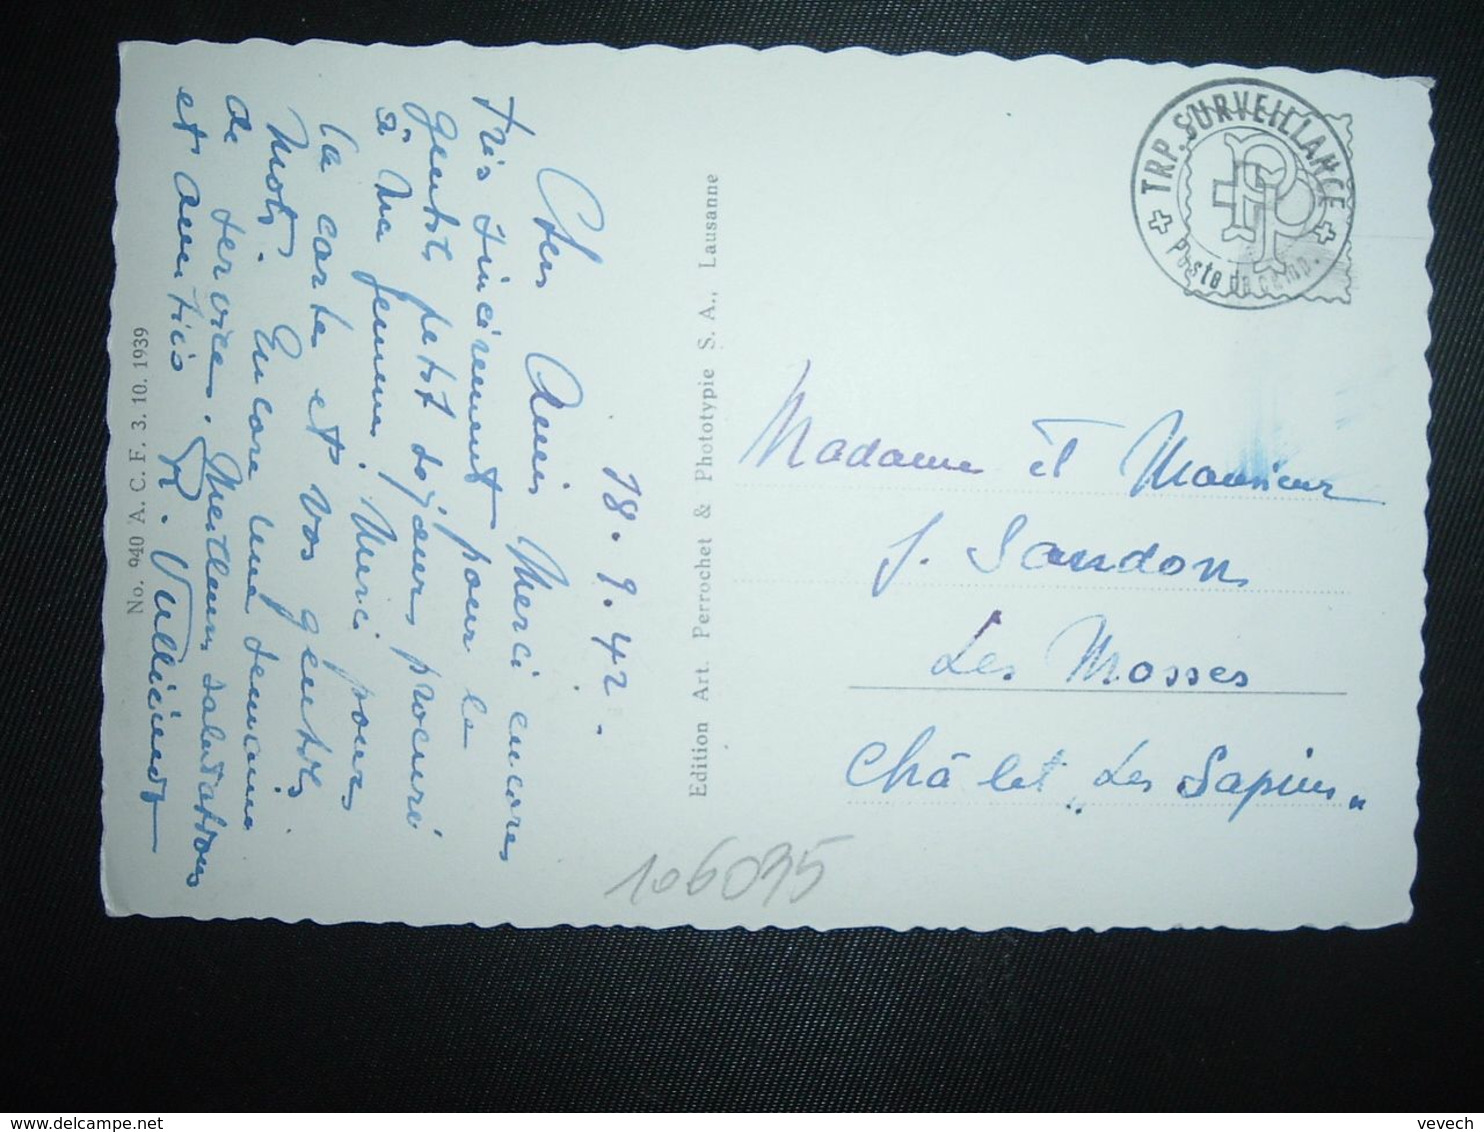 18.9.42.
Chers Amis Merci encores
très sincèrement pour le
gentil petit séjour procuré
à ma femme. Merci pour
la carte et vos gentils
mots. Encore une semaine
de service. Meilleures salutations
et amitiés
No. 940 A. C. F. 3. 10. 1939
Edition Art. Perrochet & Phototypie S. A., Lausanne
TRP. SURVEILLANCE
Poste de camp.
Madame et Monsieur
J. Sandoz
Les Mosses
Châlet „Les Sapins"
106095
vevech